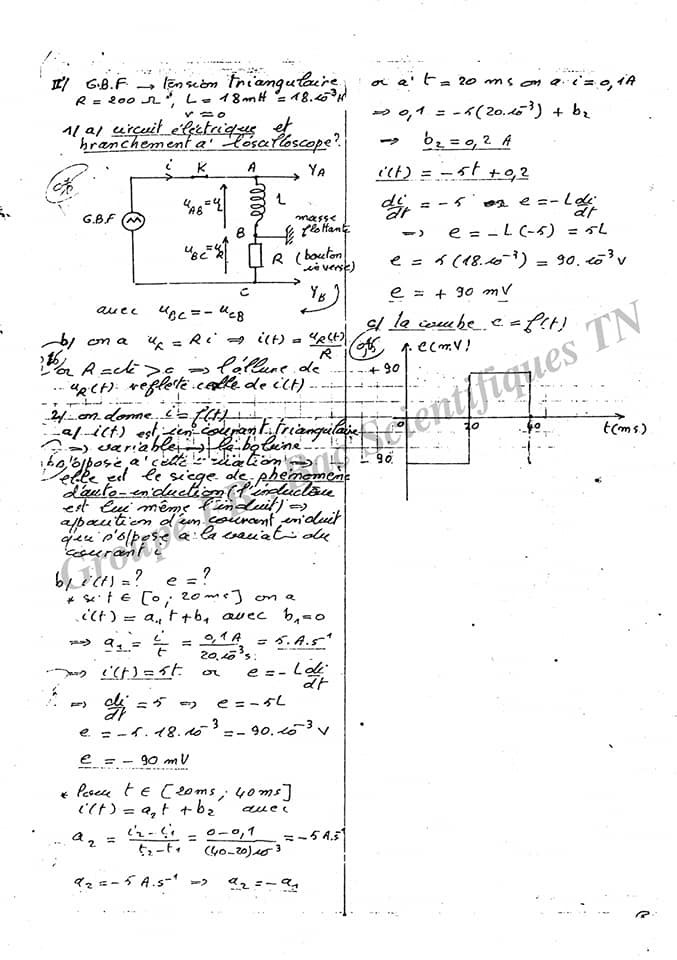 II/ G.B.F → tension triangulaire
R = 200 Ω, L = 18mH = 18.10⁻³H
r = 0
1/a/ circuit électrique et
branchement a' l'oscilloscope?
i K A Y_A
u_AB = u_L
L
G.B.F
B
masse
flottante
u_BC = u_R
R (bouton
inverse)
C Y_B
avec u_BC = - u_CB
b/ on a u_R = Ri ⇒ i(t) = u_R(t)/R
or R = cte > 0 ⇒ l'allure de
u_R(t) reflète celle de i(t)
2/ on donne i = f(t)
a/ i(t) est un courant triangulaire
⇒ variable ⇒ la bobine
s'oppose a' cette variation ⇒
elle est le siège de phénomène
d'auto-induction (l'inducteur
est lui même l'induit) ⇒
apparition d'un courant induit
qui s'oppose a la variat° du
courant i
b/ i(t) = ? e = ?
* si t ∈ [0, 20ms] on a
i(t) = a₁t + b₁ avec b₁ = 0
⇒ a₁ = i/t = 0,1A/20.10⁻³s = 5.A.s⁻¹
⇒ i(t) = 5t or e = -L di/dt
⇒ di/dt = 5 ⇒ e = -5L
e = -5.18.10⁻³ = -90.10⁻³ V
e = - 90 mV
* Pour t ∈ [20ms, 40ms]
i(t) = a₂t + b₂ avec
a₂ = i₂-i₁/t₂-t₁ = 0-0,1/(40-20)10⁻³ = -5A.s⁻¹
a₂ = -5A.s⁻¹ ⇒ a₂ = -a₁
or a' t = 20 ms on a i = 0,1A
⇒ 0,1 = -5(20.10⁻³) + b₂
⇒ b₂ = 0,2 A
i(t) = -5t + 0,2
di/dt = -5 or e = -L di/dt
⇒ e = -L(-5) = 5L
e = 5(18.10⁻³) = 90.10⁻³V
e = + 90 mV
c/ la courbe e = f(t)
e(mV)
+90
0 20 40 t(ms)
-90
Bac Scientifiques TN